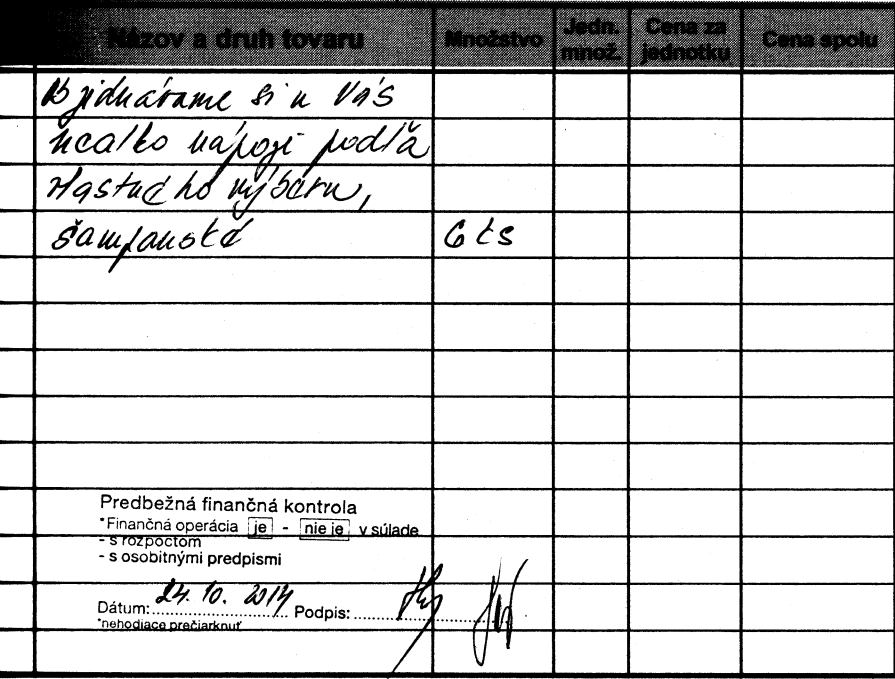 Názov a druh tovaru Množstvo Jedn. množ. Cena za jednotku Cena spolu
Objednávame si u Vás
nealko nápoje podľa
vlastného výberu,
šampanské 6 ks
Predbežná finančná kontrola
*Finančná operácia je - nie je v súlade
- s rozpočtom
- s osobitnými predpismi
Dátum: 24. 10. 2014 Podpis:
*nehodiace prečiarknuť